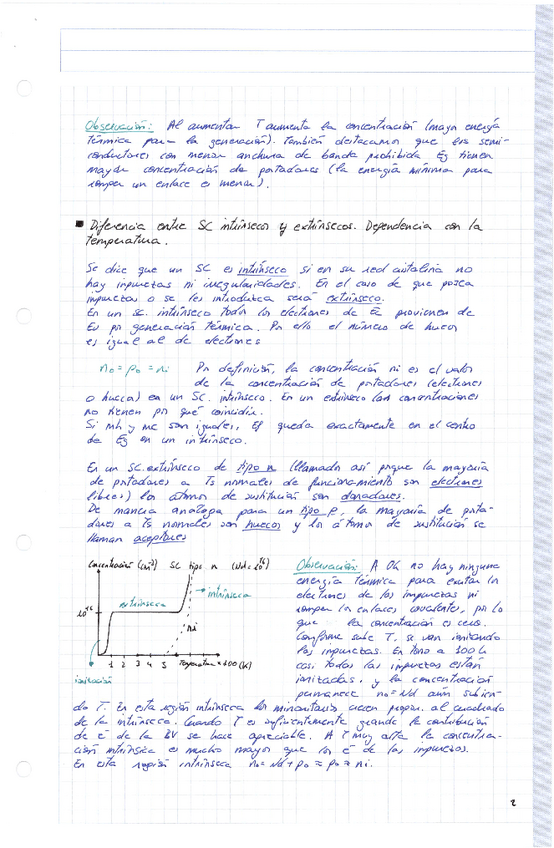 Observación: Al aumentar T aumenta la concentración (mayor energía
térmica para la generación). También destacamos que los semi-
conductores con menor anchura de banda prohibida Eg tienen
mayor concentración de portadores (la energía mínima para
romper un enlace es menor).
■ Diferencia entre SC intrínsecos y extrínsecos. Dependencia con la
temperatura.
Se dice que un SC es intrínseco si en su red cristalina no
hay impurezas ni irregularidades. En el caso de que posea
impurezas o se les introduzca será extrínseco.
En un sc. intrínseco todos los electrones de Ec provienen de
Ev por generación térmica. Por ello el número de huecos
es igual al de electrones
n₀ = p₀ = ni Por definición, la concentración ni es el valor
de la concentración de portadores (electrones
o huecos) en un SC. intrínseco. En un extrínseco las concentraciones
no tienen por qué coincidir.
Si mh y me son iguales, Ef queda exactamente en el centro
de Eg en un intrínseco.
En un SC. extrínseco de tipo n (llamado así porque la mayoría
de portadores a Ts normales de funcionamiento son electrones
libres) los átomos de sustitución son donadores.
De manera análoga para un tipo p, la mayoría de porta-
dores a Ts normales son huecos y los átomos de sustitución se
llaman aceptores
Concentración (cm⁻³) SC tipo n (Nd = 10¹⁶)
10¹⁶
extrínseca
intrínseca
ni
1 2 3 4 5 Temperatura × 100 (K)
ionización
Observación: A 0K no hay ninguna
energía térmica para excitar los
electrones de las impurezas ni
romper los enlaces covalentes, por lo
que la concentración es cero.
Conforme sube T, se van ionizando
las impurezas. En torno a 100 K
casi todas las impurezas están
ionizadas, y la concentración
permanece n₀ = Nd aún subien-
do T. En esta región intrínseca los minoritarios crecen propor. al cuadrado
de la intrínseca. Cuando T es suficientemente grande la contribución
de e⁻ de la BV se hace apreciable. A T muy alta la concentra-
ción intrínseca es mucho mayor que los e⁻ de las impurezas.
En esta región intrínseca n₀ = Nd + p₀ ≈ p₀ ≈ ni.
2